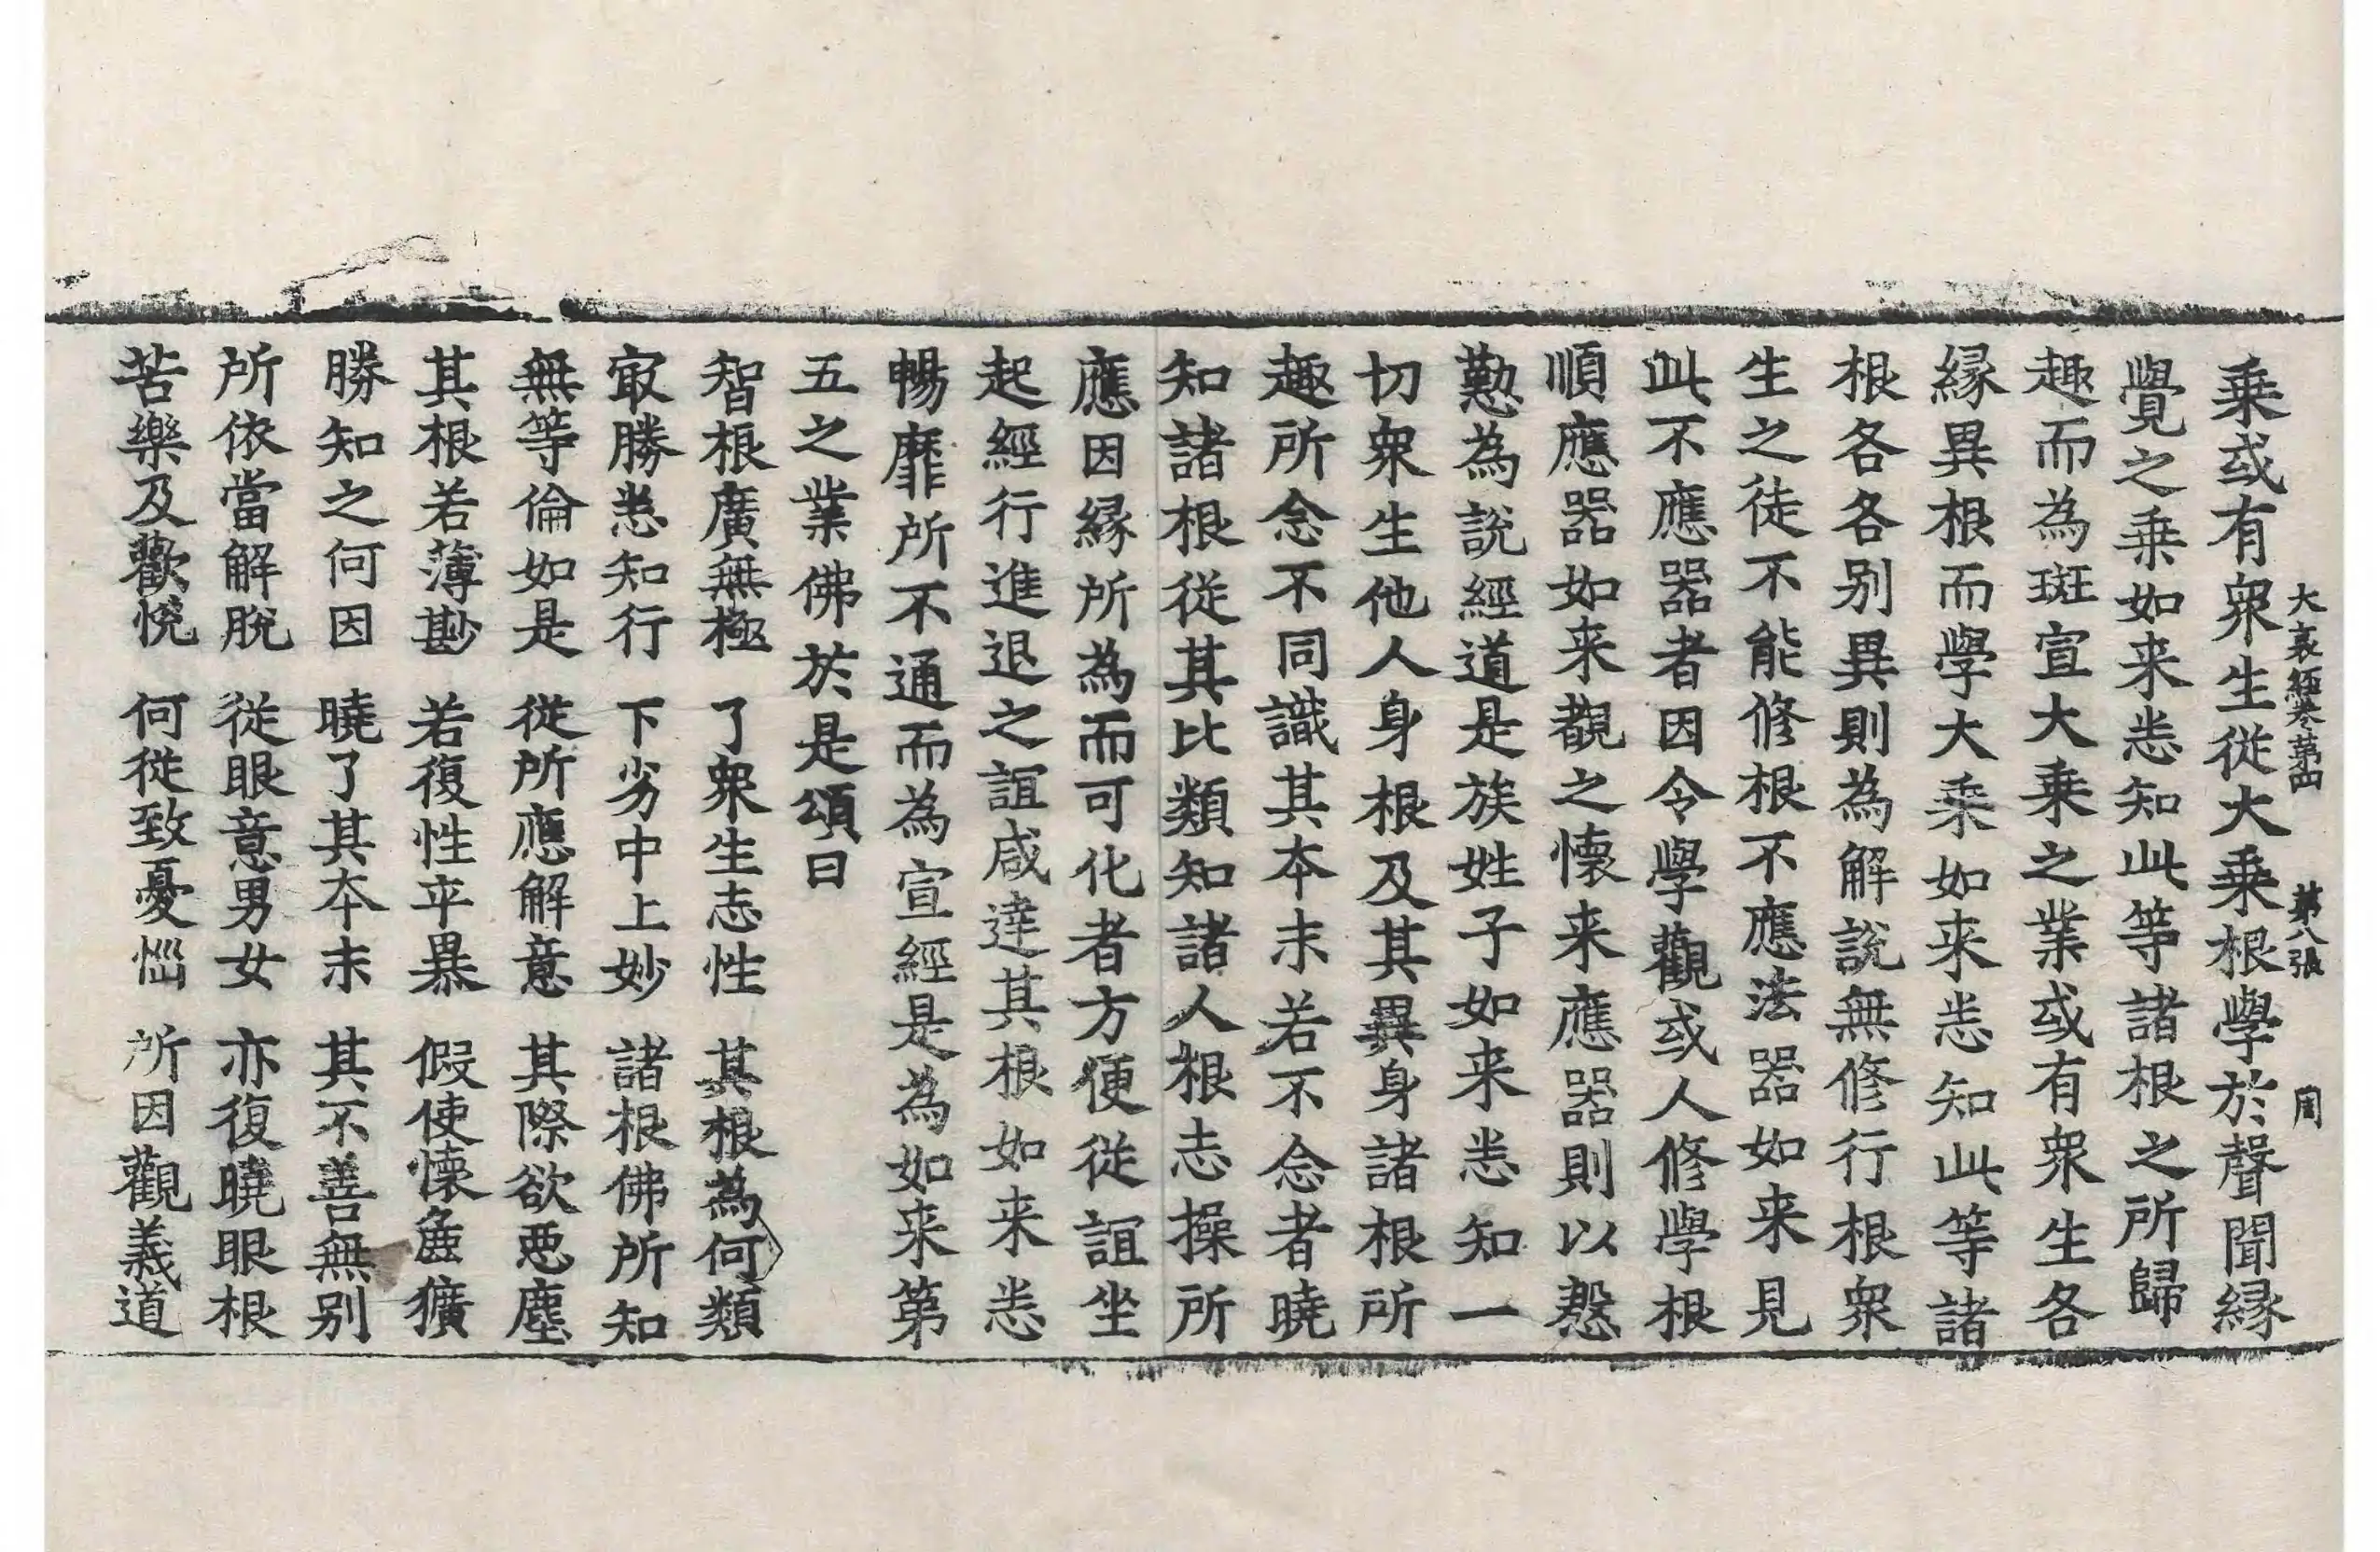 大哀經卷第四 第八張 周
乗或有衆生從大乗根學於聲聞縁
覺之乗如来悉知此等諸根之所歸
趣而為斑宣大乗之業或有衆生各
縁異根而學大乘如来悉知此等諸
根各各别異則為解說無修行根衆
生之徒不能修根不應法器如来見
此不應器者因令學觀或人修學根
順應器如来觀之懐来應器則以慇
懃為說經道是族姓子如来悉知一
切衆生他人身根及其異身諸根所
趣所念不同識其本末若不念者曉
知諸根從其比類知諸人根志操所
應因縁所為而可化者方便從誼坐
起經行進退之誼咸達其根如来悉
暢靡所不通而為宣經是為如来第
五之業佛於是頌曰
智根廣無極 了衆生志性 其根為何類
㝡勝悉知行 下劣中上妙 諸根佛所知
無等倫如是 從所應解意 其際欲惡塵
其根若薄尠 若復性卒暴 假使懐麁獷
勝知之何因 曉了其本末 其不善無别
所依當解脫 從眼意男女 亦復曉眼根
苦樂及歡悅 何從致憂惱 所因觀義道